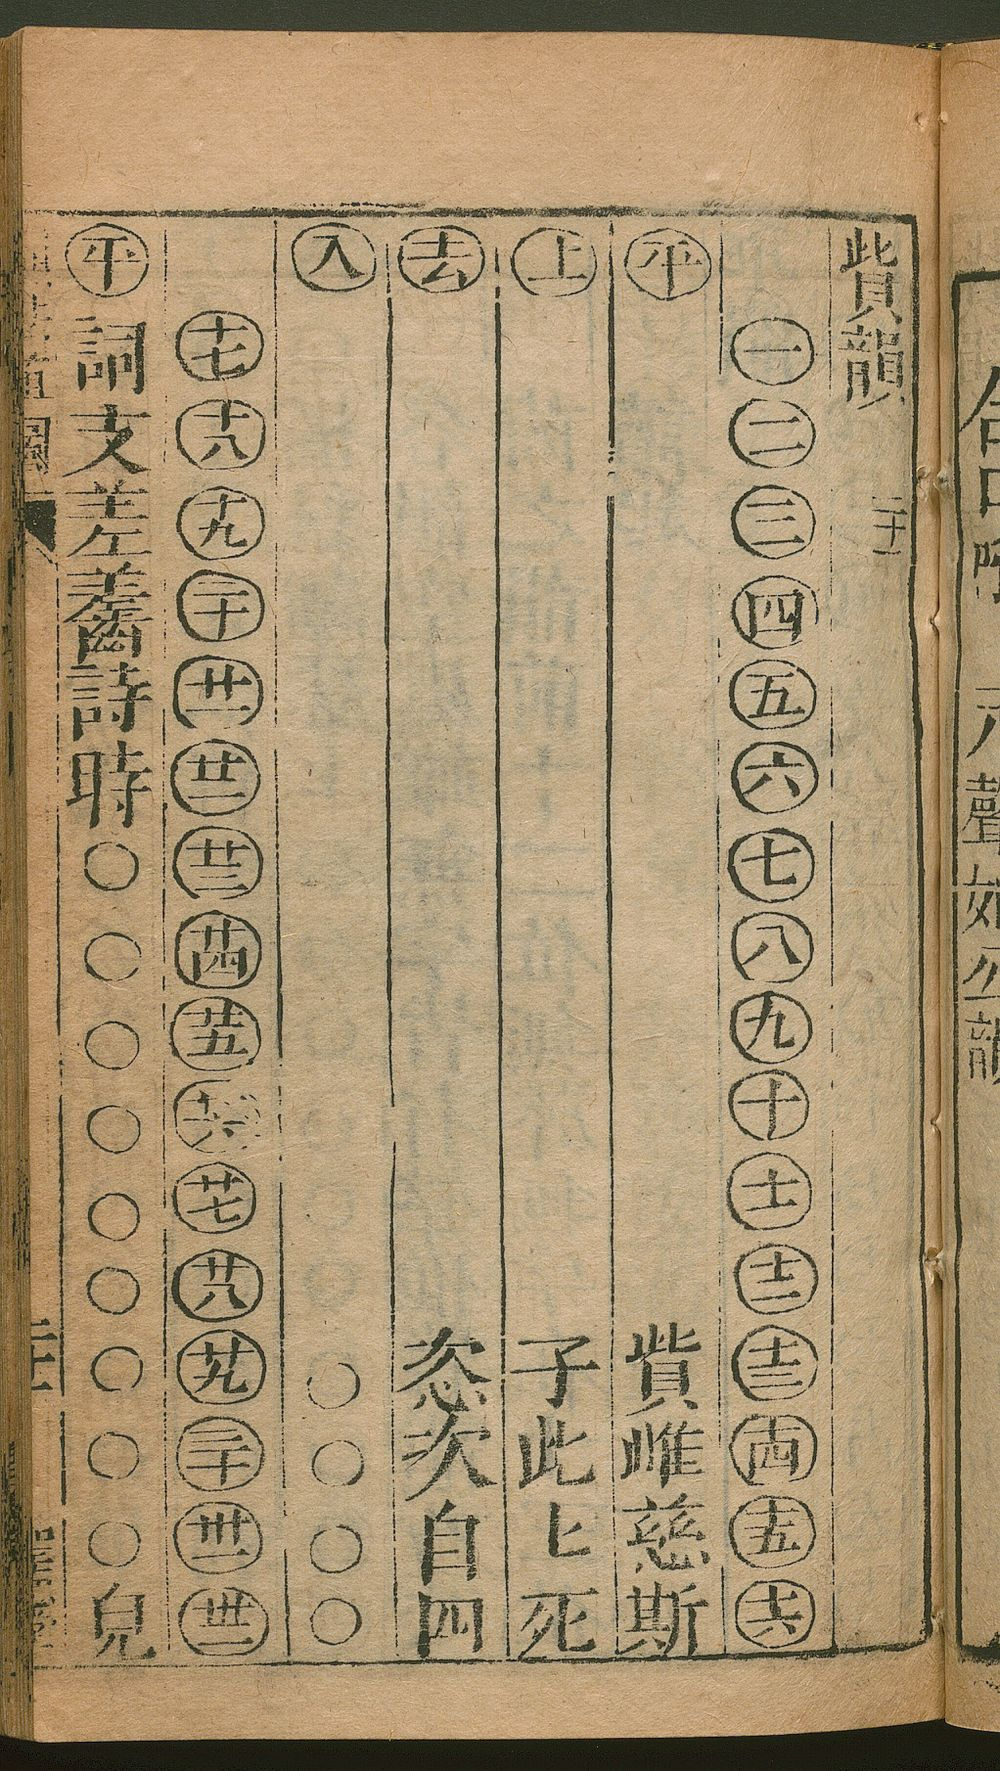 貲韻 二十一
一 二 三 四 五 六 七 八 九 十 十一 十二 十三 十四 十五 十六
平 貲雌慈斯
上 子此𠤎死
去 恣次自四
入 ○○○○
十七 十八 十九 二十 廿一 廿二 廿三 廿四 廿五 廿六 廿七 廿八 廿九 三十 卅一 卅二
平 詞支差齹詩時○○○○○○○○○兒
二十一